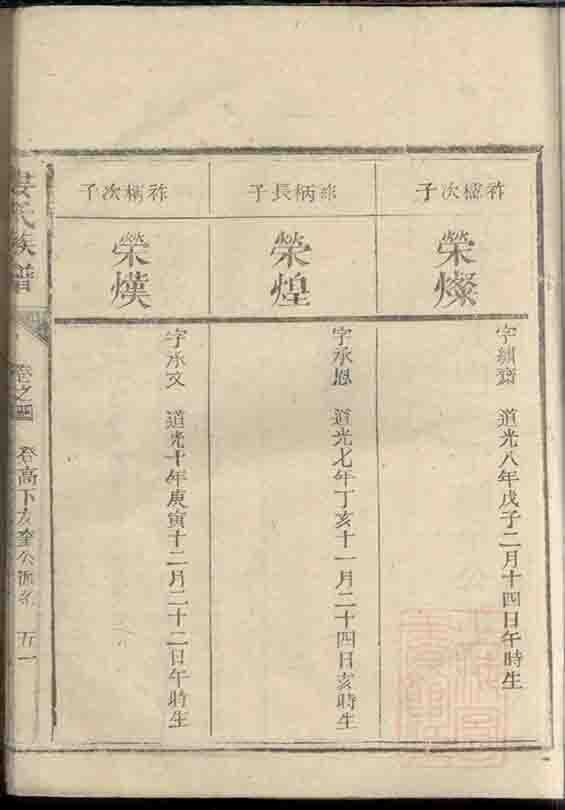 祚檽次子
榮燦
字纘齋 道光八年戊子二月十四日午時生
祚柄長子
榮煌
字承恩 道光七年丁亥十一月二十四日亥時生
祚柄次子
榮熯
字承文 道光十年庚寅十二月二十二日午時生
晏氏族譜
卷之四 登高下友奎公派系 五一